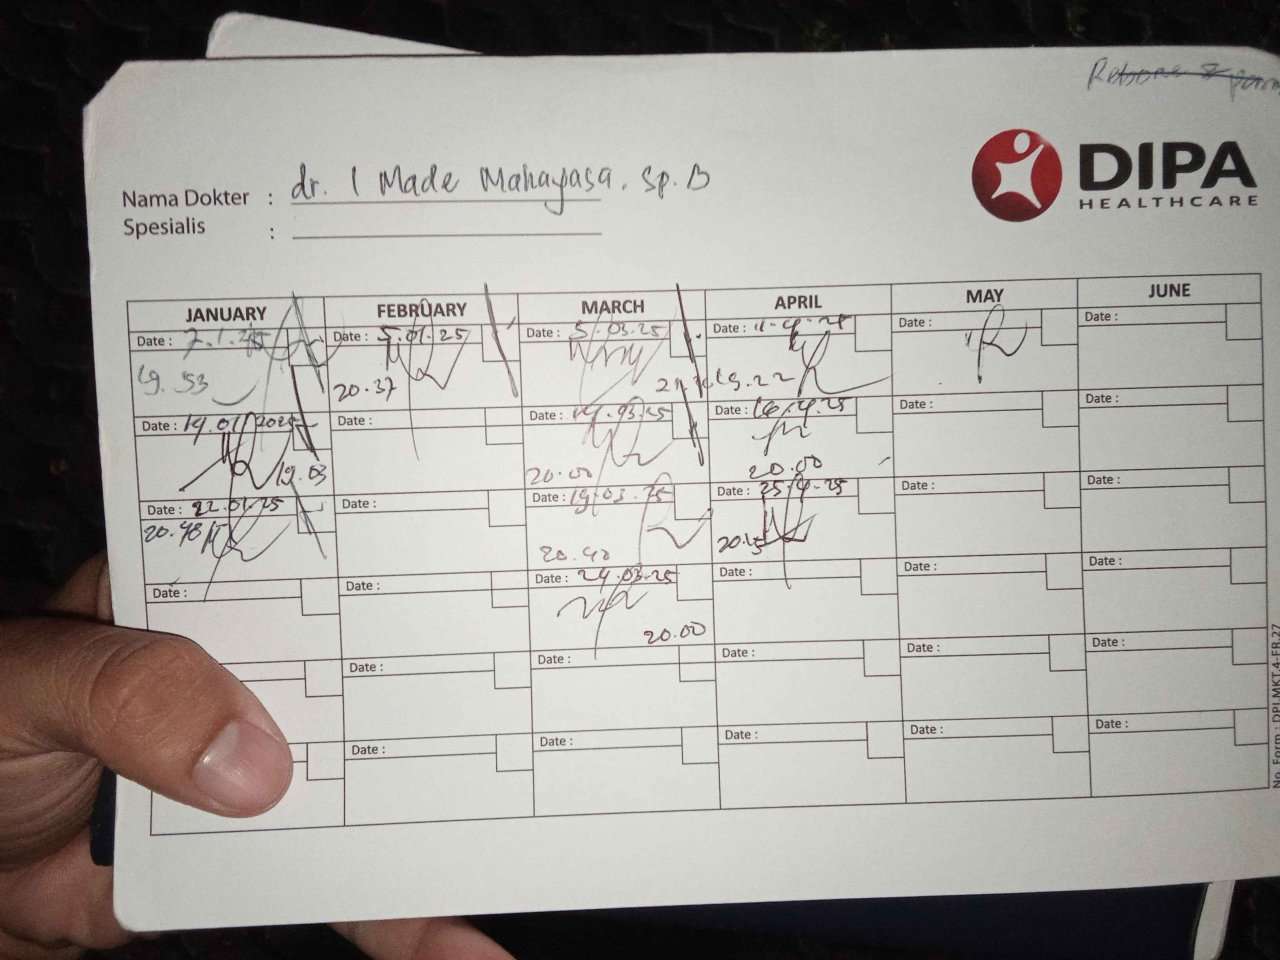 DIPA
HEALTHCARE
Nama Dokter : dr. I Made Mahayasa, Sp. B
Spesialis :
JANUARY FEBRUARY MARCH APRIL MAY JUNE
Date : 7.1.25 Date : 5.01.25 Date : 5.03.25 Date : 11-4-25 Date : Date :
19.53 20.37 19.22
Date : 14.01.2025 Date : Date : 14.03.25 Date : 16.4.25 Date : Date :
19.03 20.00 20.00
Date : 22.01.25 Date : Date : 19.03.25 Date : 25-4-25 Date : Date :
20.48 20.40 20.15
Date : Date : Date : 24.03.25 Date : Date : Date :
20.00
Date : Date : Date : Date : Date :
Date : Date : Date : Date : Date :
No. Form : DPI.MKT.4-FR.27